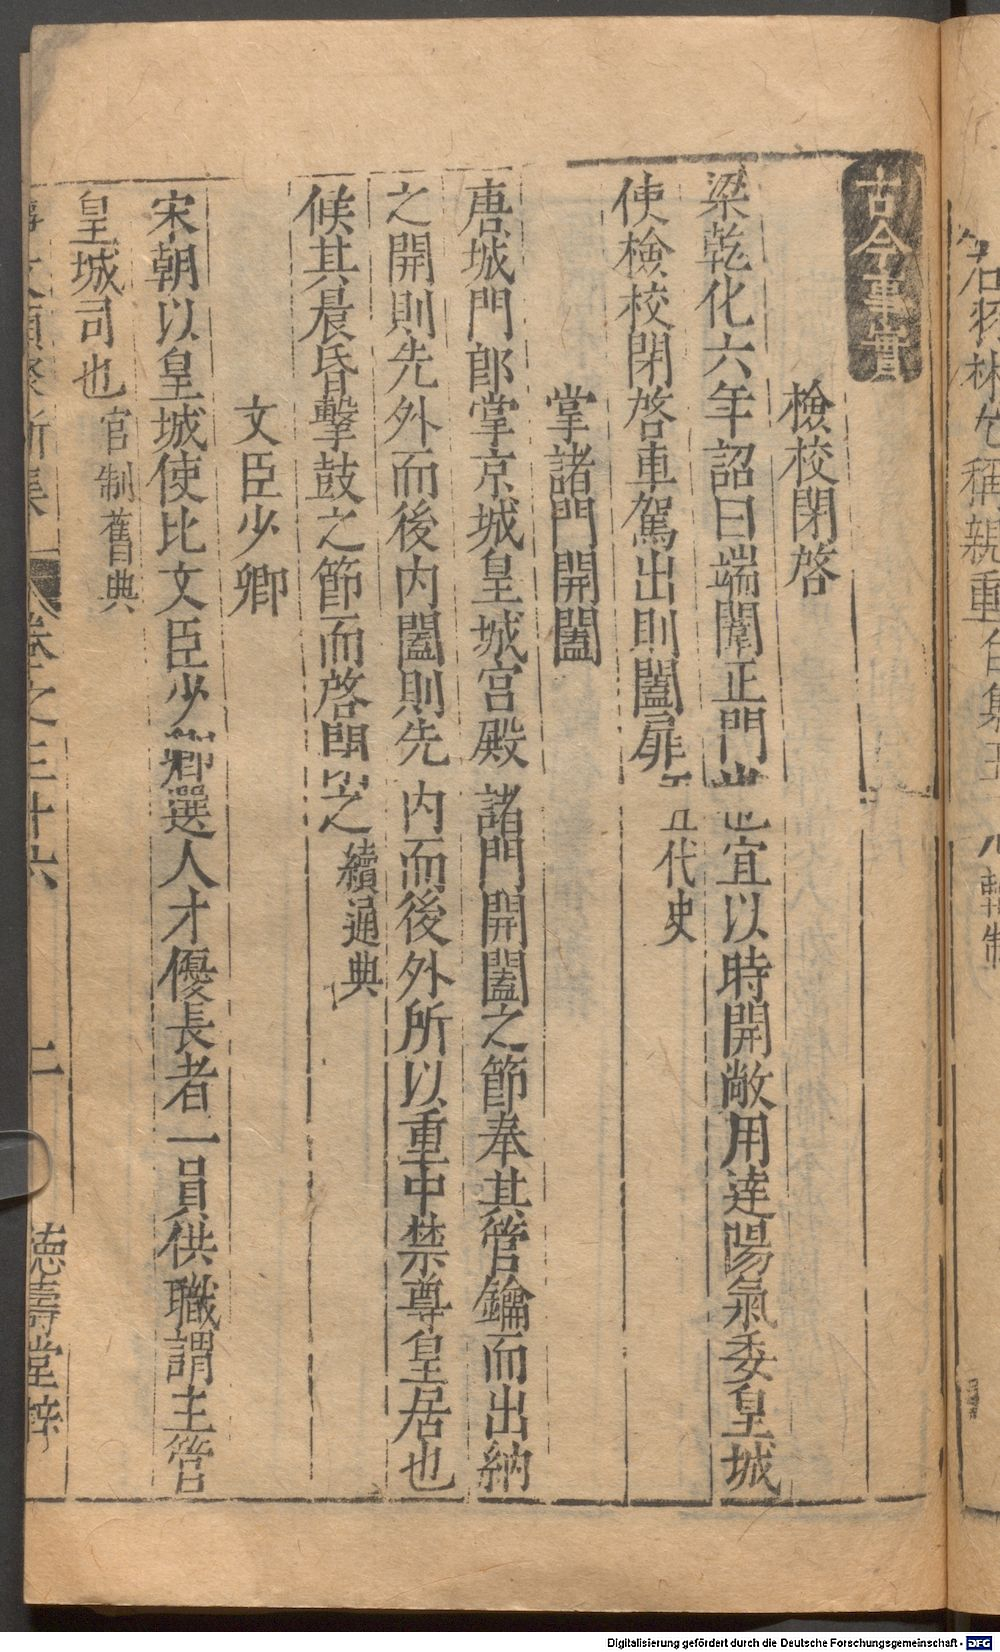 古今事實
檢校閉啓
梁乾化六年詔曰端闈正門宜以時開敞用達陽氣委皇城
使檢校閉啓車駕出則闔扉 五代史
掌諸門開闔
唐城門郎掌京城皇城宮殿諸門開闔之節奉其管鑰而出納
之開則先外而後内闔則先内而後外所以重中禁尊皇居也
候其晨昏擊鼓之節而啓閉之 續通典
文臣少卿
宋朝以皇城使比文臣少卿選人才優長者一員供職謂主管
皇城司也 官制舊典
卷之三十六 二 德壽堂梓
Digitalisierung gefördert durch die Deutsche Forschungsgemeinschaft - DFG